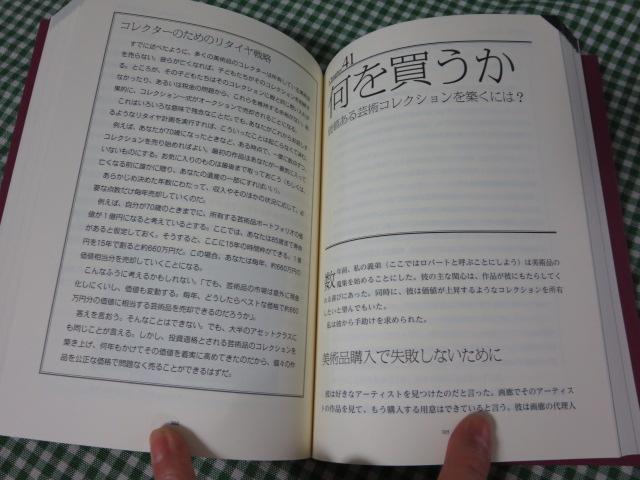 コレクターのためのリタイヤ戦略
すでに述べたように、多くの美術品のコレクターは所有している美術品
を売らない。自らが亡くなれば、子どもたちがそのコレクションを
る。ところが、その子どもたちはそのコレクションに
なかったり、あるいは税金の問題から、これらを維持する余裕がない。結
果的に、コレクション一式がオークション売却されることになる。
これはいろいろな意味で残念なことだ。でも、あなたがこれからお話しす
るようなリタイヤ計画を実行すれば、こういったことは起こらなくて済む。
例えば、あなたが70歳になったときなど、ある時点で、一度に数点ずつ、
コレクションを売り始めればよい。最初の作品はあなたが一番気に入って
いないものにする。お気に入りのものは最後まで取っておこう（もしくは、
亡くなる前に誰かに贈り、あなたの遺産の一部にすればいい）。
あらかじめ決めた年数にわたって、収入やそのほかの状況に応じて、必
要な点数だけ毎年売却していくのだ。
例えば、自分が70歳のときまでに、所有する芸術品ポートフォリオの価
値が1億円になると考えているとする。ここでは、あなたは85歳まで寿命
があると仮定しておく。そうすると、ここに15年の時間枠ができる。1億
円を15年で割ると約660万円だ。この場合、あなたは毎年、約660万円の
価値相当分を売却していくことになる。
こんなふうに考えるかもしれない。「でも、芸術品の市場は意外に現金
化しにくいし、価値も変動する。毎年、どうしたらベストな価格で約660
万円分の価値に相当する芸術品を売却できるのだろうか」。
答えを言おう。そんなことはできない。でも、大半のアセットクラスに
も同じことが言える。しかし、投資適格とされる芸術品のコレクションを
築き上げ、何年もかけてその価値を着実に高めてきたのだから、個々の作
品を公正な価格で問題なく売ることができるはずだ。
41
何を買うか
価値ある芸術コレクションを築くには？
数年前、私の義弟（ここではロバートと呼ぶことにしよう）は美術品の
蒐集を始めることにした。彼の主な関心は、作品が彼にもたらしてく
れる喜びにあった。同時に、彼は価値が上昇するようなコレクションを所有
したいと望んでもいた。
私は彼から手助けを求められた。
美術品購入で失敗しないために
彼は好きなアーティストを見つけたのだと言った。画廊でそのアーティス
トの作品を見て、もう購入する用意はできていると言う。彼は画廊の代理人